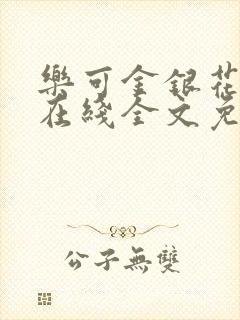 樂可金銀花
在綫全文免
公子無雙